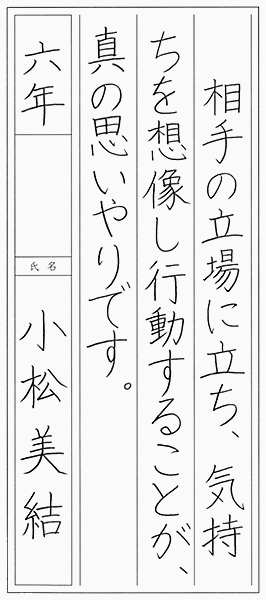 相手の立場に立ち、気持
ちを想像し行動することが、
真の思いやりです。
六年
氏名
小松美結